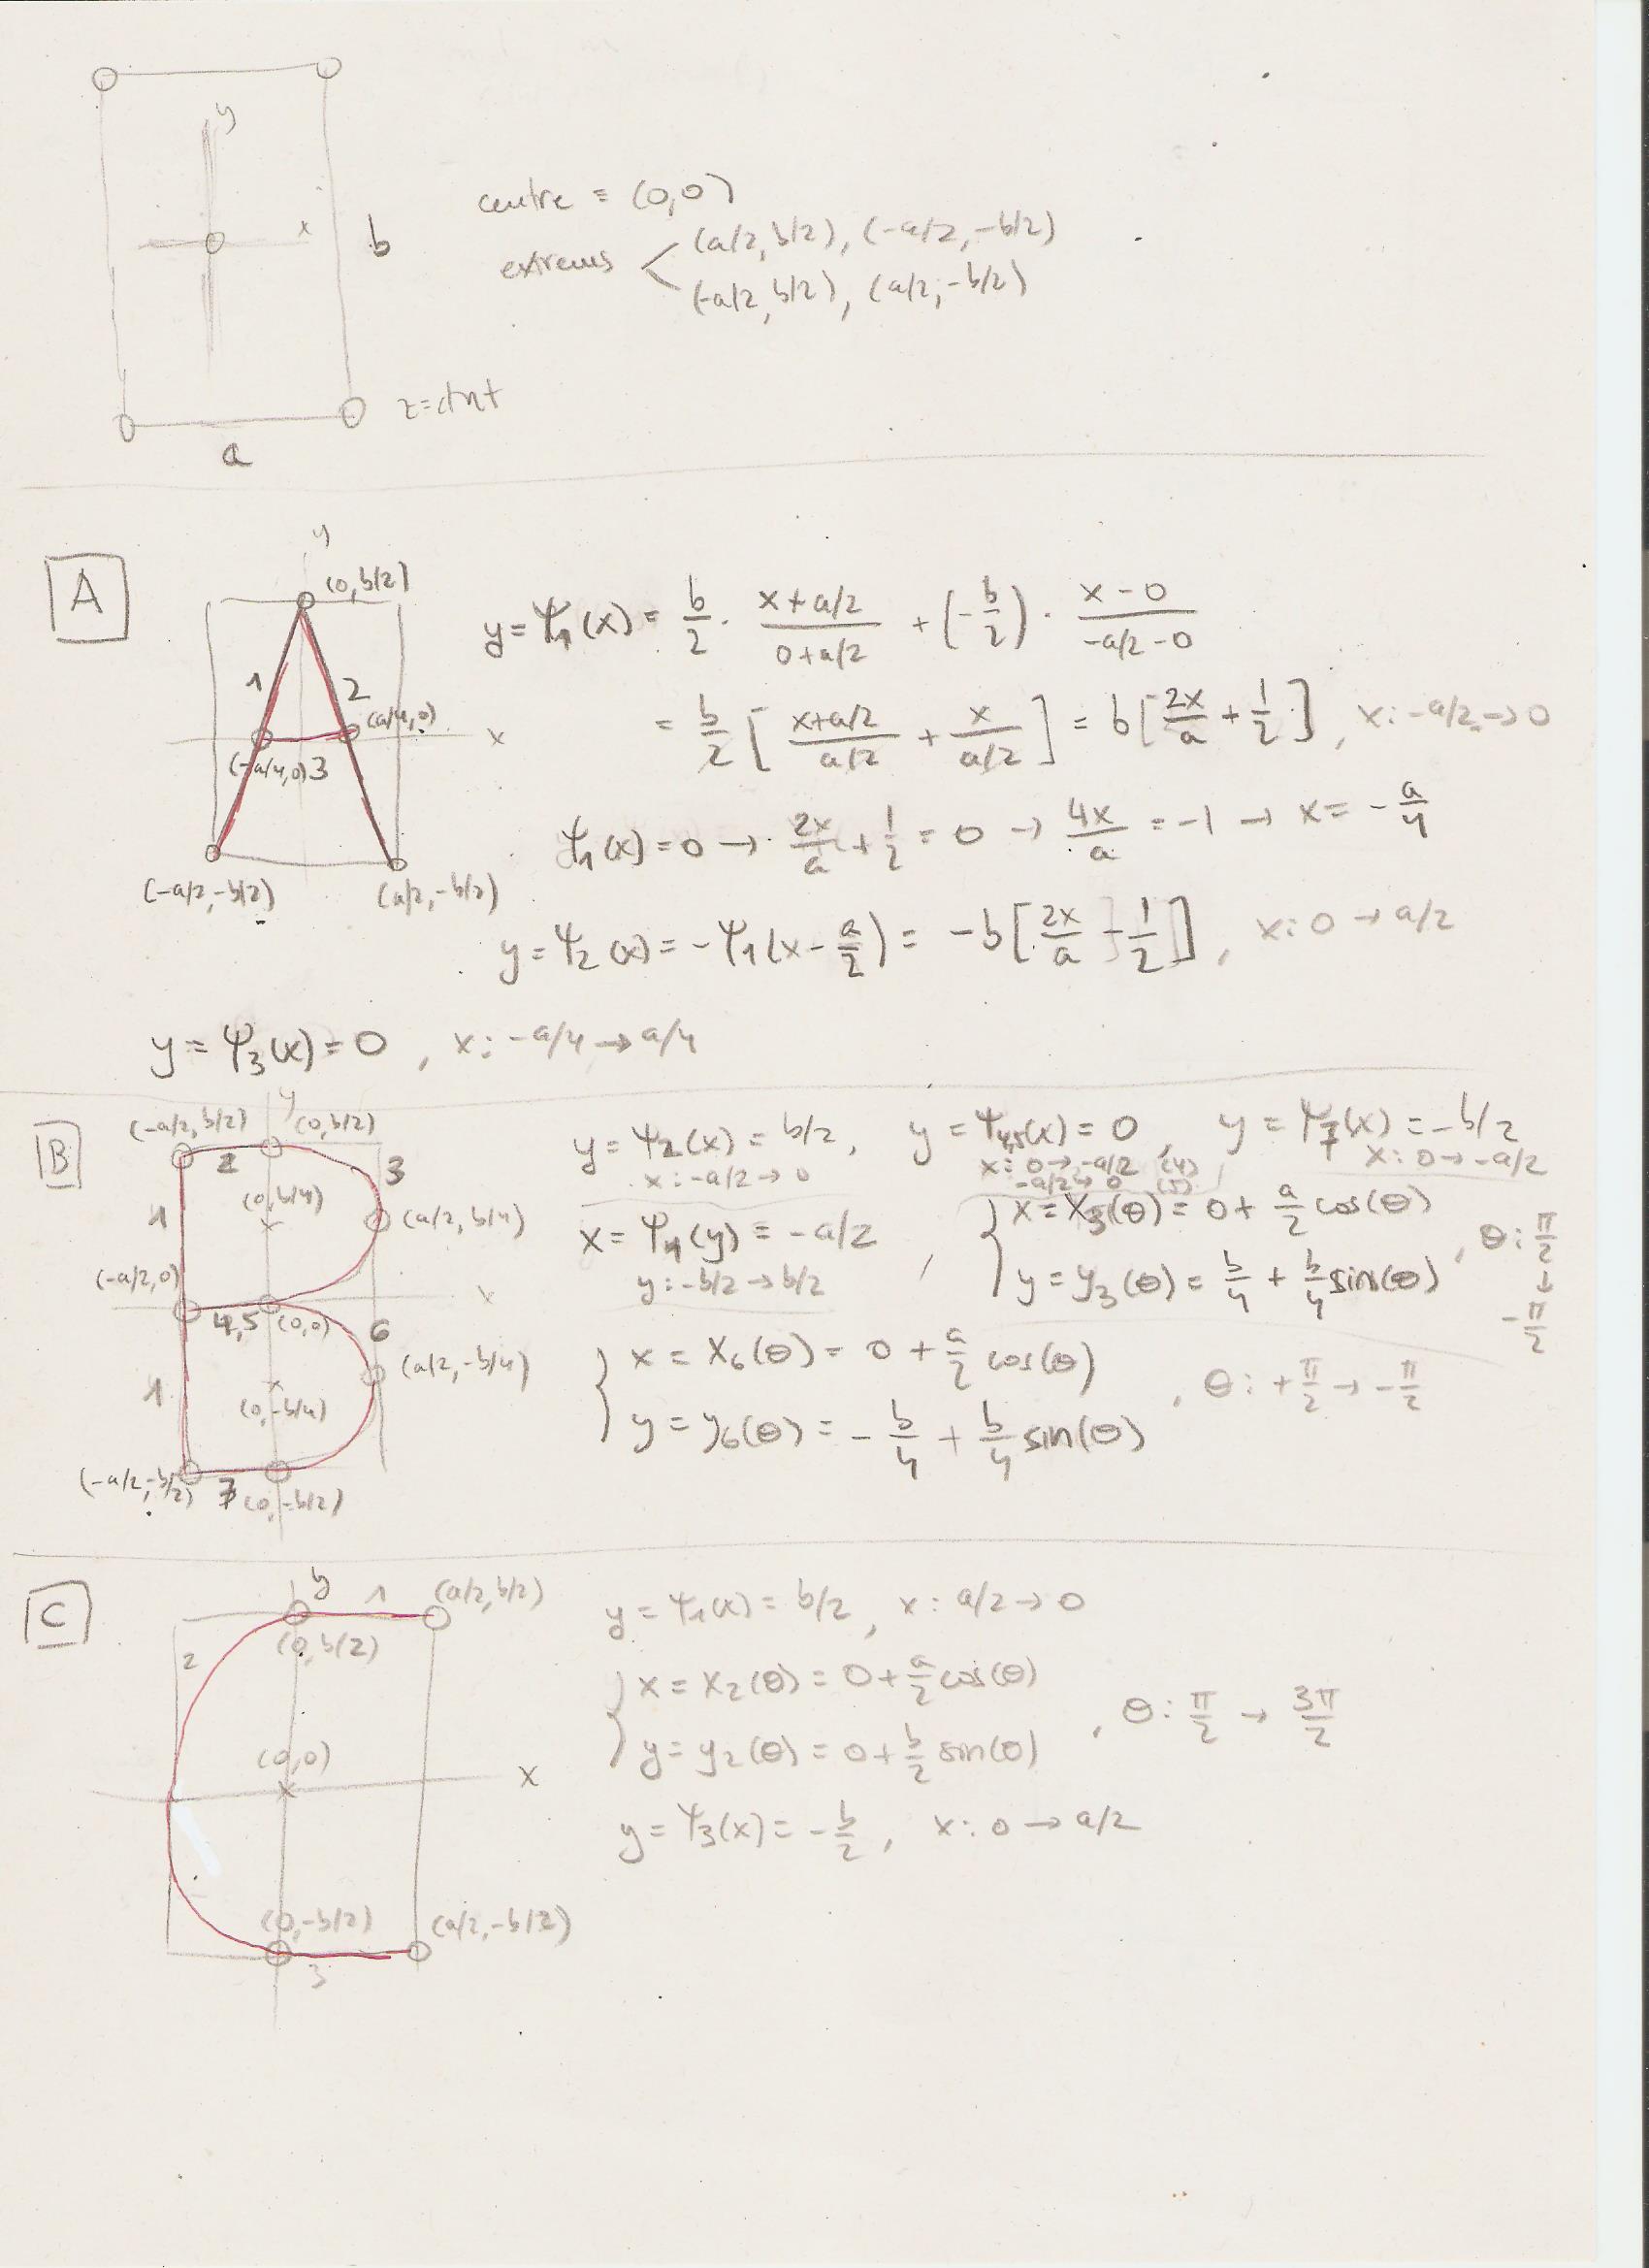 y
x
b
a
z=ctnt
centre ≡ (0,0)
extrems < (a/2, b/2), (-a/2, -b/2)
(-a/2, b/2), (a/2, -b/2)
A
y
(0, b/2)
1
2
(a/4, 0)
x
(-a/4, 0) 3
(-a/2, -b/2) (a/2, -b/2)
y = Ψ₁(x) = b/2 · (x + a/2)/(0 + a/2) + (-b/2) · (x - 0)/(-a/2 - 0)
= b/2 [ (x+a/2)/(a/2) + x/(a/2) ] = b[ 2x/a + 1/2 ], x: -a/2 → 0
Ψ₁(x) = 0 → 2x/a + 1/2 = 0 → 4x/a = -1 → x = -a/4
y = Ψ₂(x) = -Ψ₁(x - a/2) = -b[ 2x/a - 1/2 ], x: 0 → a/2
y = Ψ₃(x) = 0, x: -a/4 → a/4
B
y
(-a/2, b/2) (0, b/2)
2
3
1
(0, b/4)
(a/2, b/4)
(-a/2, 0)
x
4,5 (0,0)
6
(a/2, -b/4)
1
(0, -b/4)
(-a/2, -b/2) 7 (0, -b/2)
y = Ψ₂(x) = b/2, y = Ψ₄,₅(x) = 0, y = Ψ₇(x) = -b/2
x: -a/2 → 0 x: 0 → -a/2 (4) x: 0 → -a/2
-a/2 → 0 (5)
x = Ψ₁(y) = -a/2, { x = x₃(θ) = 0 + a/2 cos(θ)
y: -b/2 → b/2 y = y₃(θ) = b/4 + b/4 sin(θ), θ: π/2 → -π/2
{ x = x₆(θ) = 0 + a/2 cos(θ)
y = y₆(θ) = -b/4 + b/4 sin(θ), θ: +π/2 → -π/2
C
y
1
(a/2, b/2)
(0, b/2)
2
(0,0)
x
(0, -b/2) (a/2, -b/2)
3
y = Ψ₁(x) = b/2, x: a/2 → 0
{ x = x₂(θ) = 0 + a/2 cos(θ)
y = y₂(θ) = 0 + b/2 sin(θ), θ: π/2 → 3π/2
y = Ψ₃(x) = -b/2, x: 0 → a/2